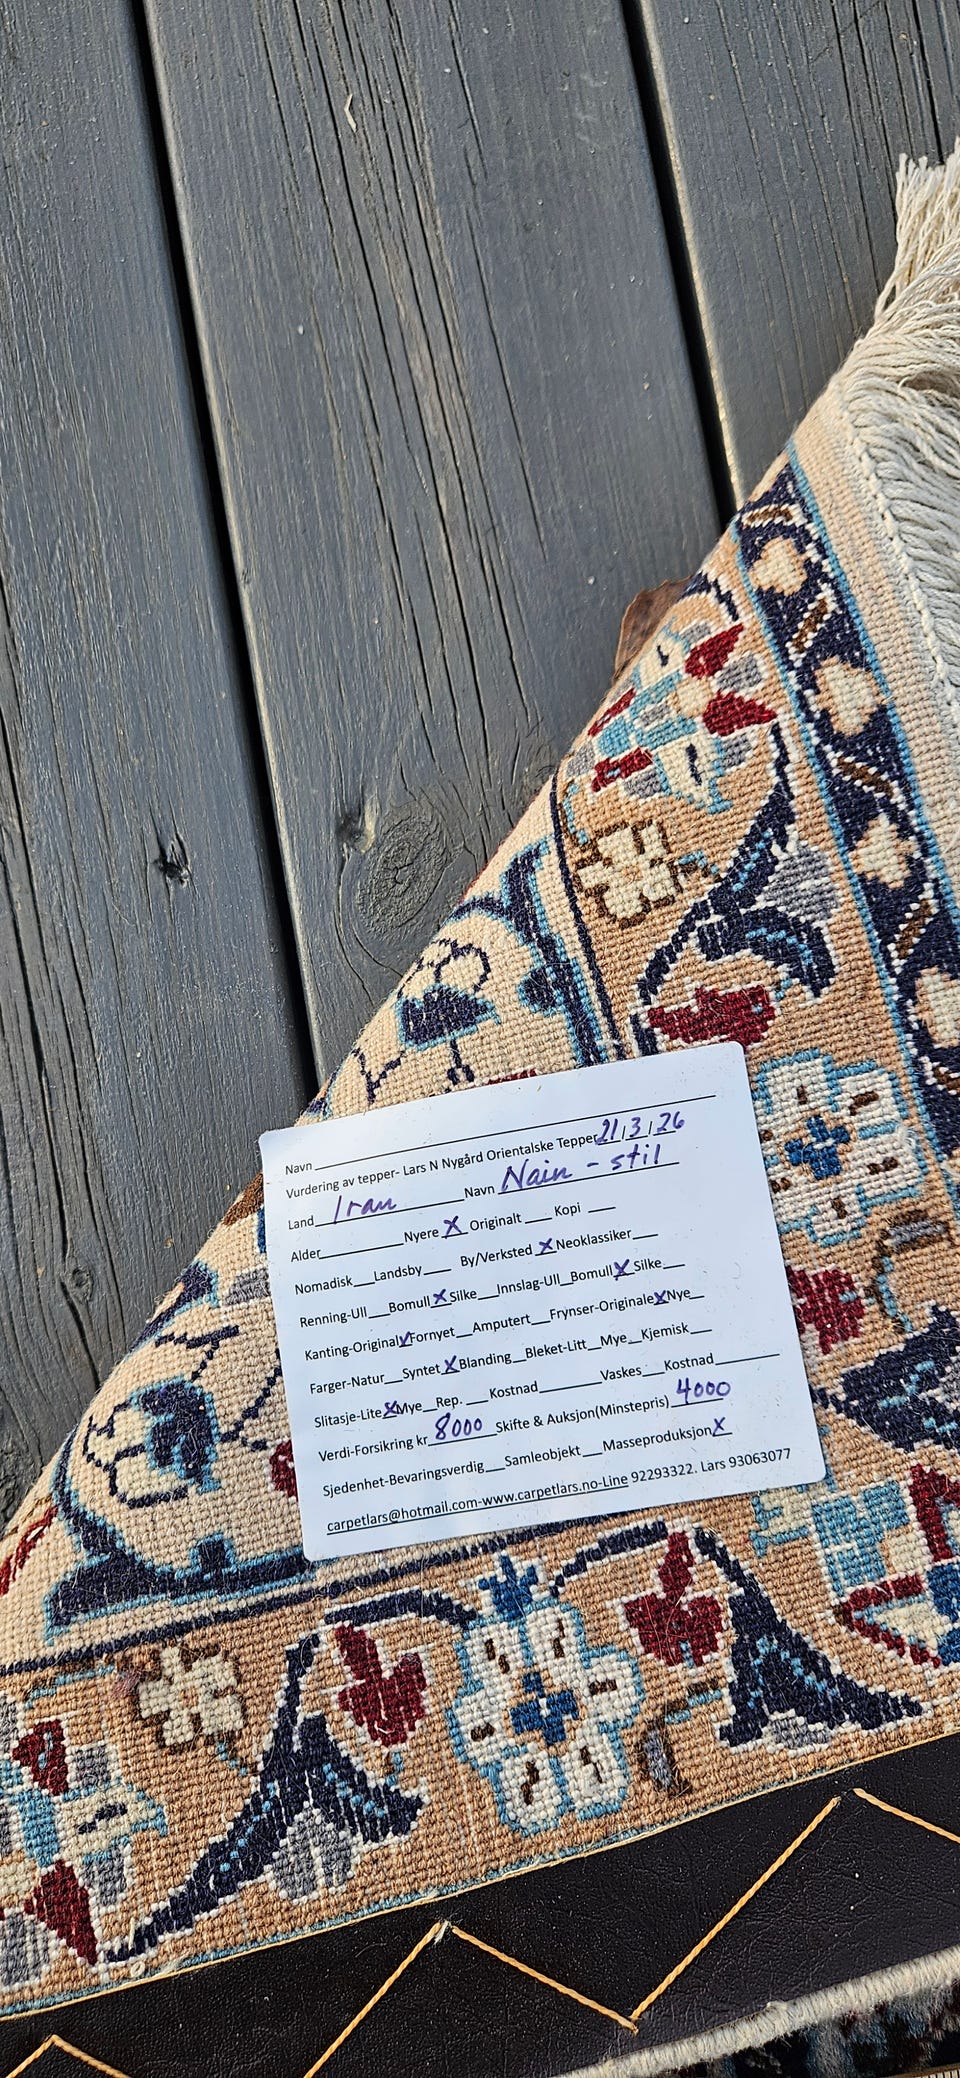 Navn
Vurdering av tepper- Lars N Nygård Orientalske Tepper 21/3/26
Land Iran Navn Nain - stil
Alder Nyere X Originalt Kopi
Nomadisk Landsby By/Verksted X Neoklassiker
Renning-Ull Bomull X Silke Innslag-Ull Bomull X Silke
Kanting-Original X Fornyet Amputert Frynser-Originale X Nye
Farger-Natur Syntet X Blanding Bleket-Litt Mye Kjemisk
Slitasje-Lite X Mye Rep. Kostnad Vaskes Kostnad
Verdi-Forsikring kr 8000 Skifte & Auksjon(Minstepris) 4000
Sjedenhet-Bevaringsverdig Samleobjekt Masseproduksjon X
carpetlars@hotmail.com-www.carpetlars.no-Line 92293322. Lars 93063077